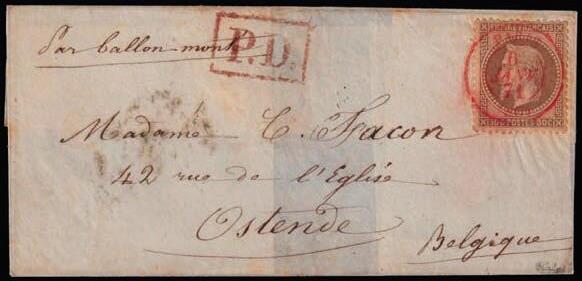 Par ballon monté
P.D.
EMPIRE FRANÇAIS
71
30C POSTES 30C
Madame C. Facon
42 rue de l'Eglise
Ostende
Belgique